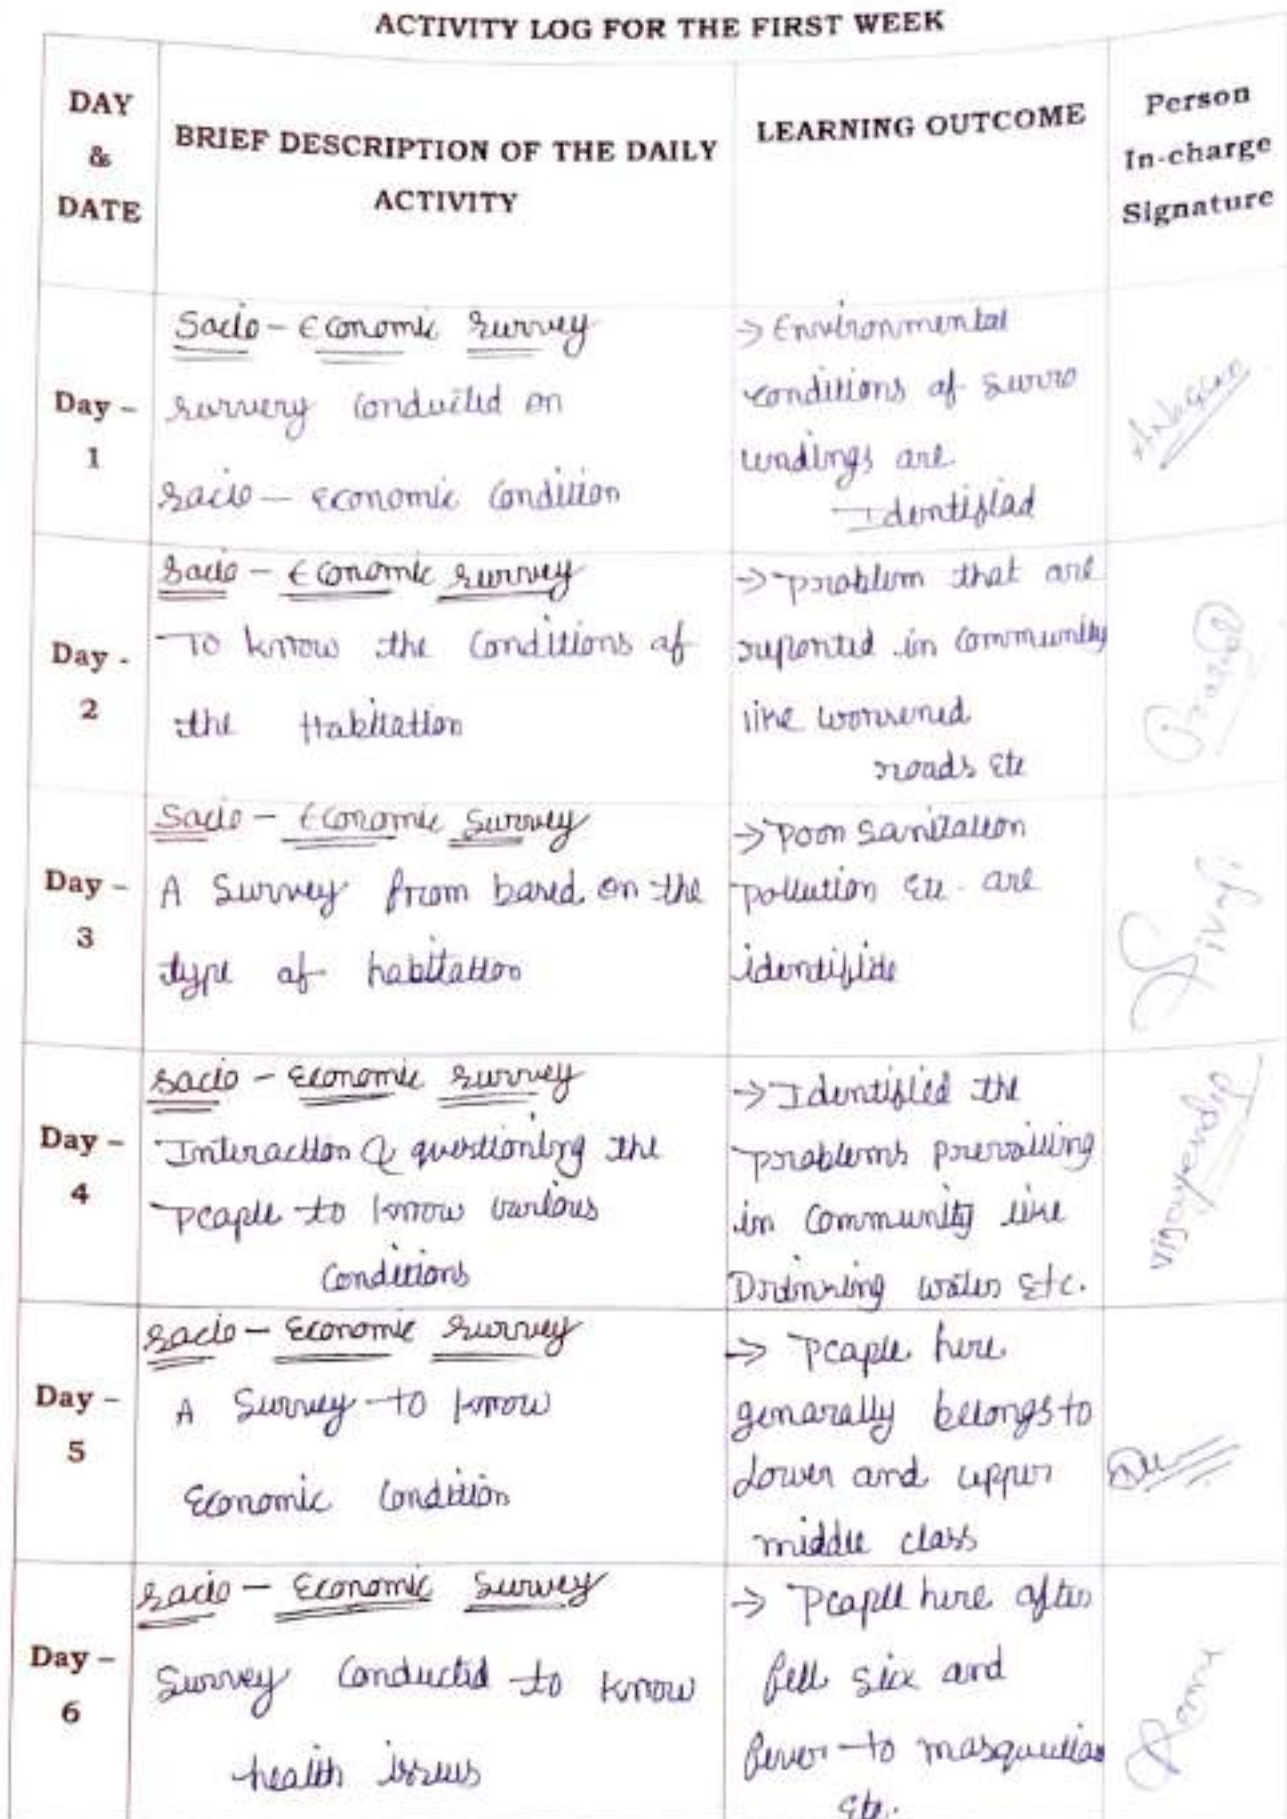 ACTIVITY LOG FOR THE FIRST WEEK
DAY & DATE
BRIEF DESCRIPTION OF THE DAILY
ACTIVITY
LEARNING OUTCOME
Person
In-charge
Signature
Day – 1
Socio – Economic Survey
survery conducted on
socio – economic condition
→ Environmental
conditions of surro
undings are
Identifiad
Day - 2
Socio – Economic survey
To know the conditions of
the Habitation
→ problem that are
reported in community
like worsened
roads etc
Prasad
Day – 3
Socio – Economic Survey
A Survey from based on the
type of habitation
→ poor sanitation
pollution etc. are
identifide
Sivaji
Day – 4
socio – Economic survey
Interaction & questioning the
people to know various
conditions
→ Identified the
problems prevailing
in community like
Drinking water Etc.
Day – 5
socio – Economic survey
A Survey to know
Economic condition
→ people here
genarally belongs to
Lower and upper
middle class
Day – 6
socio – Economic Survey
Survey conducted to know
health issues
→ people here often
fell sick and
fever to
etc.